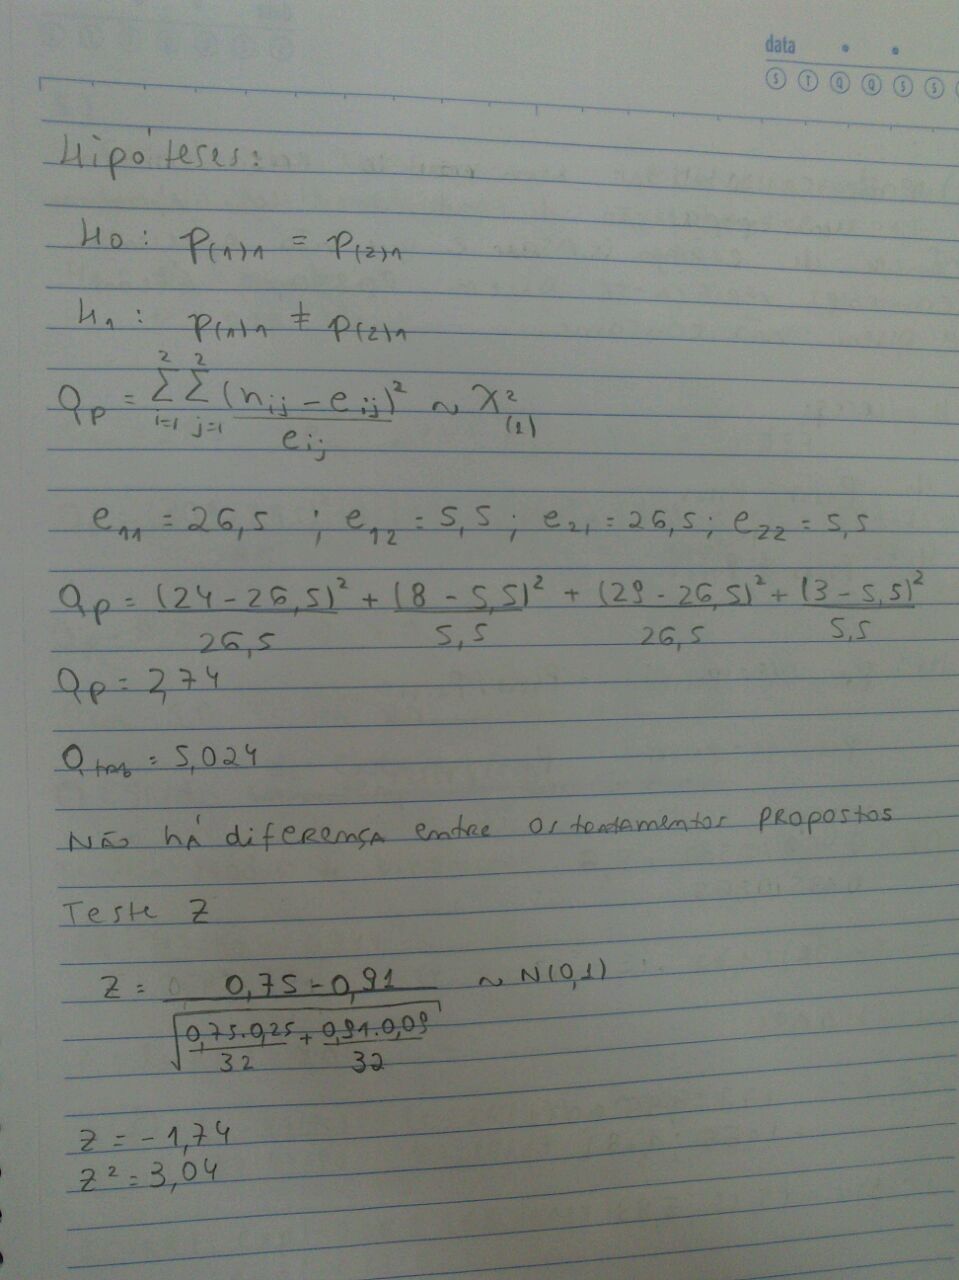 data
S T Q Q S S
Hipóteses:
H0: P(1)1 = P(2)1
H1: P(1)1 ≠ P(2)1
Qp = Σ²i=1 Σ²j=1 (nij - eij)² / eij ~ χ²(1)
e11 = 26,5 ; e12 = 5,5 ; e21 = 26,5 ; e22 = 5,5
Qp = (24 - 26,5)² / 26,5 + (8 - 5,5)² / 5,5 + (29 - 26,5)² / 26,5 + (3 - 5,5)² / 5,5
Qp = 2,74
Qtab = 5,024
Não há diferença entre os tratamentos propostos
Teste Z
Z = 0,75 - 0,91 / √(0,75.0,25 / 32 + 0,91.0,09 / 32) ~ N(0,1)
Z = -1,74
Z² = 3,04